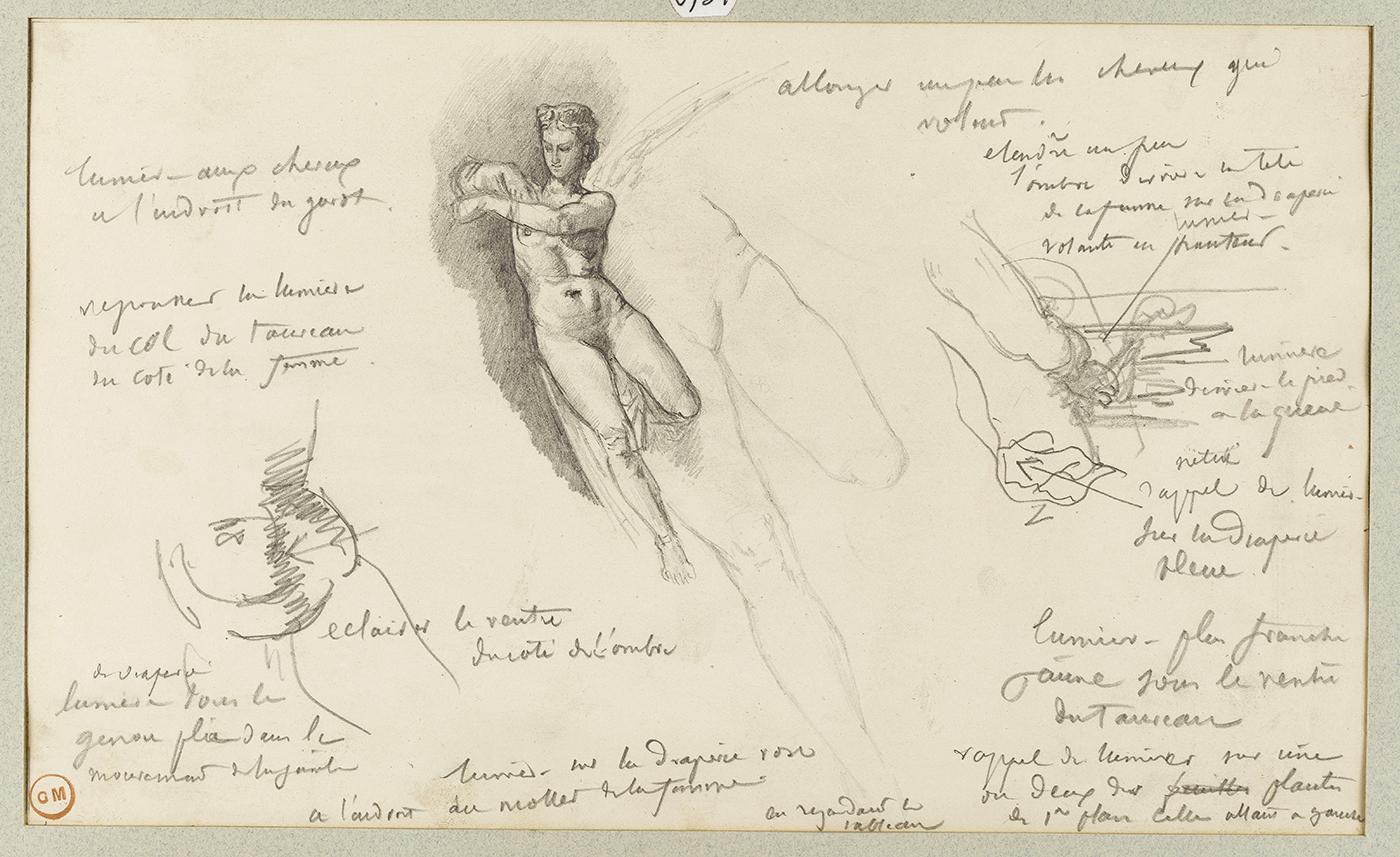 allonger un peu les cheveux qui
volent.
etendre un peu
l'ombre derriere la tete
de la femme sur la draperie
volante en hauteur.
lumiere aux cheveux
a l'endroit du
repousser la lumiere
du col du taureau
du coté de la femme.
lumiere
lumiere
derriere le pied
a la queue
petit
rappel de lumiere
sur la draperie
bleue
eclairer le ventre
du coté de l'ombre
de draperie
lumiere sous le
genou plié dans le
mouvement de la jambe
lumiere plus franche
jaune sous le ventre
du taureau
lumiere sur la draperie rose
a l'endroit du mollet de la femme
en regardant le
tableau
rappel de lumiere sur une
ou deux des feuilles plantes
de 1er plan celles allant a gauche
GM